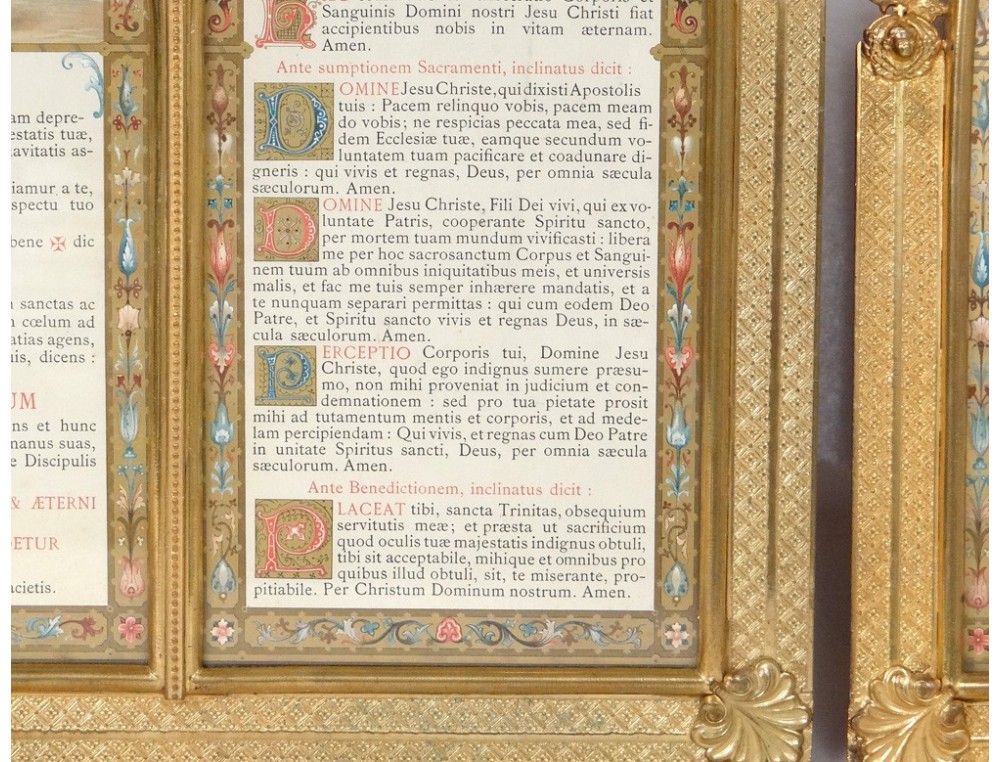 am depre-
estatis tuæ,
avitatis as-
iamur a te,
spectu tuo
bene ✠ dic
sanctas ac
cœlum ad
atias agens,
uis, dicens :
UM
ns et hunc
manus suas,
e Discipulis
& ÆTERNI
DETUR
acietis.
Sanguinis Domini nostri Jesu Christi fiat
accipientibus nobis in vitam æternam.
Amen.
Ante sumptionem Sacramenti, inclinatus dicit :
DOMINE Jesu Christe, qui dixisti Apostolis
tuis : Pacem relinquo vobis, pacem meam
do vobis; ne respicias peccata mea, sed fi-
dem Ecclesiæ tuæ, eamque secundum vo-
luntatem tuam pacificare et coadunare di-
gneris : qui vivis et regnas, Deus, per omnia sæcula
sæculorum. Amen.
DOMINE Jesu Christe, Fili Dei vivi, qui ex vo-
luntate Patris, cooperante Spiritu sancto,
per mortem tuam mundum vivificasti : libera
me per hoc sacrosanctum Corpus et Sangui-
nem tuum ab omnibus iniquitatibus meis, et universis
malis, et fac me tuis semper inhærere mandatis, et a
te nunquam separari permittas : qui cum eodem Deo
Patre, et Spiritu sancto vivis et regnas Deus, in sæ-
cula sæculorum. Amen.
PERCEPTIO Corporis tui, Domine Jesu
Christe, quod ego indignus sumere præsu-
mo, non mihi proveniat in judicium et con-
demnationem : sed pro tua pietate prosit
mihi ad tutamentum mentis et corporis, et ad mede-
lam percipiendam : Qui vivis, et regnas cum Deo Patre
in unitate Spiritus sancti, Deus, per omnia sæcula
sæculorum. Amen.
Ante Benedictionem, inclinatus dicit :
PLACEAT tibi, sancta Trinitas, obsequium
servitutis meæ; et præsta ut sacrificium
quod oculis tuæ majestatis indignus obtuli,
tibi sit acceptabile, mihique et omnibus pro
quibus illud obtuli, sit, te miserante, pro-
pitiabile. Per Christum Dominum nostrum. Amen.